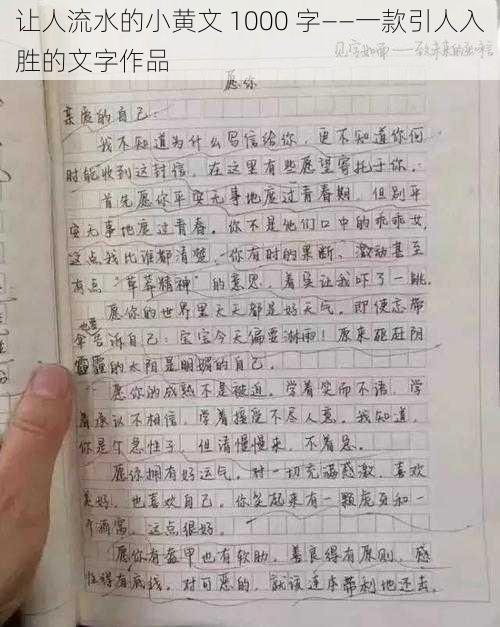 让人流水的小黄文 1000 字——一款引人入
胜的文字作品
见字如面——致未来的
愿你
亲爱的自己:
我不知道为什么写信给你,更不知道你何
时能收到这封信,在这里有些愿望寄托于你。
首先愿你平安无事地度过青春期,但别平
安无事地度过青春。你不是他们口中的乖乖女,
这点我比谁都清楚,你有时的果断、激动甚至
有点"草莽精神"的意思,着实让我吓了一跳。
愿你的世界里天天都是好天气。即使忘带
也要
伞告诉自己:宝宝今天偏要淋雨!原来驱赶阴
霾的太阳是明媚的自己。
愿你的成熟不是被迫,学着笑而不语,学
着承认不相信,学着接受不尽人意。我知道,
你是个急性子,但请慢慢来,不着急。
愿你拥有好运气,对一切充满感激,喜欢
美好,也喜欢自己。你笑起来有一颗虎牙和一
个酒窝,这点很好。
愿你有盔甲也有软肋,善良得有原则,感
性得有底线。对可恶的,就该连本带利地还击。